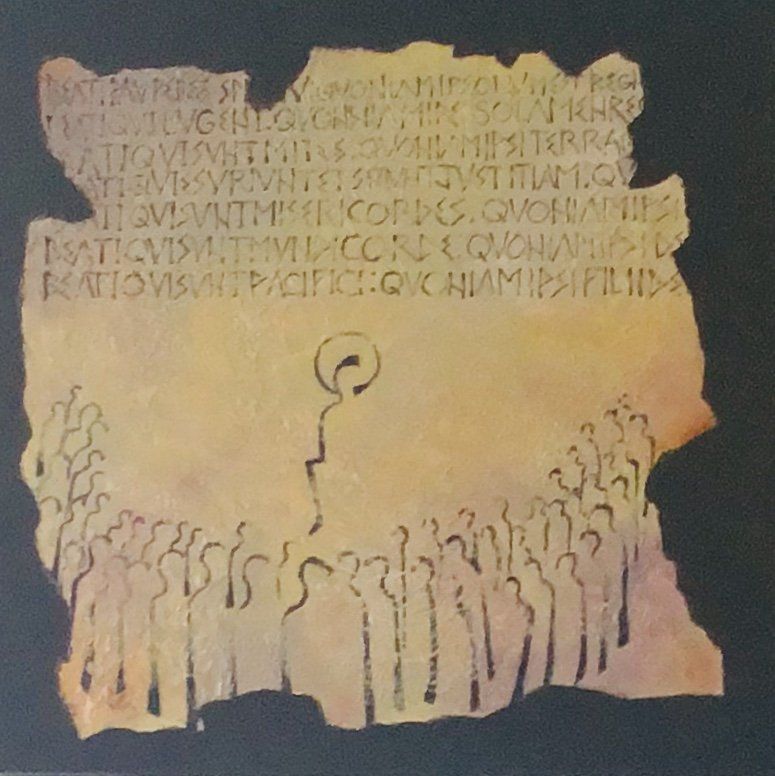 BEATI PAUPERES SP QVONIAM IPSORVM EST REGN
BEATI QVI LVGENT. QVONIAM IPSI SOLAMEN RE
EATI QVI SVNT MITES. QVONIAM IPSI TERRA
ATI QVI ESVRIVNT ET SITIVNT JVSTITIAM. QV
TI QVI SVNT MISERICORDES. QVONIAM IPSI
BEATI QVI SVNT MVNDI CORDE. QVONIAM IPSI DE
BEATI QVI SVNT PACIFICI: QVONIAM IPSI FILII DE